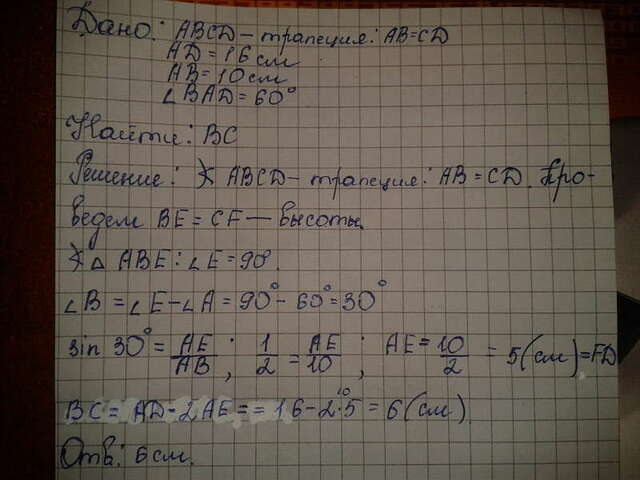 Дано: ABCD – трапеция: AB=CD
AD=16 см
AB=10 см
∠BAD=60°
Найти: BC
Решение: ABCD – трапеция: AB=CD. Про-
ведем BE=CF – высоты,
△ABE: ∠E=90°.
∠B=∠E-∠A=90°-60°=30°
sin 30°=AE/AB, 1/2=AE/10, AE=10/2=5(см)=FD
BC=AD=2AE==16-2·5=6(см)
10
Отв.: 6 см.